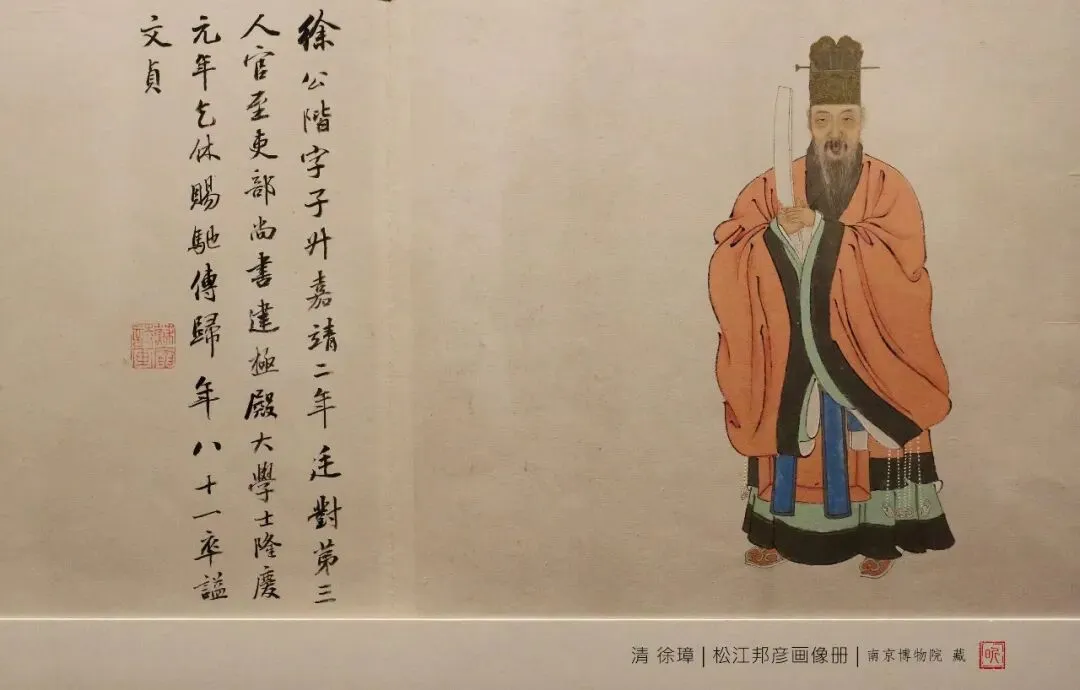 徐公階字子升嘉靖二年廷對第三
人官至吏部尚書建極殿大學士隆慶
元年乞休賜馳傳歸年八十一卒謚
文貞
清 徐璋|松江邦彦画像册|南京博物院 藏